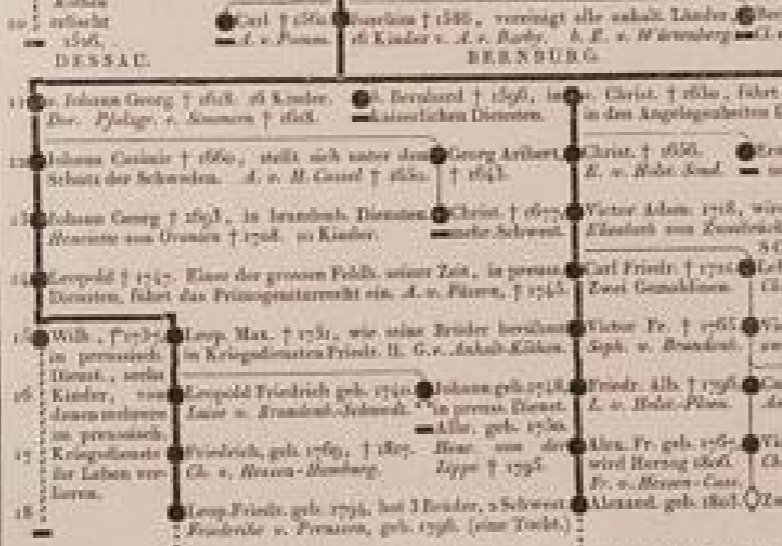 10 erlischt
1596.
DESSAU.
Carl † 1561
A. v. Pomm.
Joachim † 1586, vereinigt alle anhalt. Länder,
16 Kinder v. A. v. Barby. b. E. v. Würtenberg
BERNBURG.
11 a. Johann Georg † 1618. 16 Kinder.
Dor. Pfalzgr. v. Simmern † 1618.
b. Bernhard † 1596, in
kaiserlichen Diensten.
c. Christ. † 1630, führt
in den Angelegenheiten
12 Johann Casimir † 1660, stellt sich unter dem
Schutz der Schweden. A. v. H. Cassel † 1650.
Georg Aribert,
† 1643.
Christ. † 1656.
E. v. Holst. Sond.
13 Johann Georg † 1693, in brandenb. Diensten
Henriette von Oranien † 1708. 10 Kinder.
Christ. † 1677,
mehr. Schwest.
Victor Adam. 1718, wird
Elisabeth von Zweibrück
14 Leopold † 1747. Einer der grossen Feldh. seiner Zeit, in preuss.
Diensten, führt das Primogeniturrecht ein. A. v. Fösern, † 1745.
Carl Friedr. † 1721
Zwei Gemahlinnen.
15 Wilh., † 1737,
in preussisch.
Dienst., sechs
16 Kinder, von
denen mehrere
in preussisch.
17 Kriegsdienste
ihr Leben ver-
lieren.
18
Leop. Max. † 1751, wie seine Brüder berühmt
in Kriegsdiensten Friedr. II. G. v. Anhalt-Köthen.
Victor Fr. † 1765
Soph. v. Brandenb.
Leopold Friedrich geb. 1740.
Luise v. Brandenb.-Schwedt.
Johann geb. 1748,
in preuss. Dienst.
Albr. geb. 1750.
Henr. von der
Lippe † 1795.
Friedr. Alb. † 1796
L. v. Holst.-Ploen.
Friedrich, geb. 1769, † 1827.
Ch. v. Hessen-Homburg.
Alex. Fr. geb. 1767
wird Herzog 1806.
Fr. v. Hessen-Cass.
Leop. Friedr. geb. 1794, hat 3 Brüder, 2 Schwest
Friederike v. Preussen, geb. 1796. (eine Tocht.)
Alexand. geb. 1805